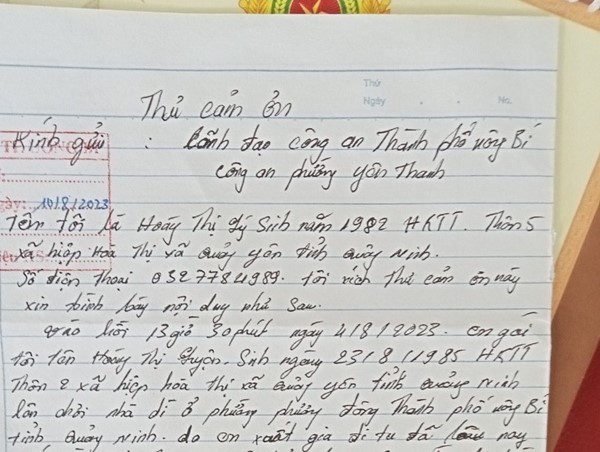 Thứ
Ngày . . No.
Thư cảm ơn
Kính gửi : Lãnh đạo công an Thành phố uông Bí
công an phường yên Thanh
ày: 10/8/2023
Tên tôi là Hoàng Thị Lý Sinh năm 1982 HKTT. Thôn 5
xã hiệp Hoà Thị xã quảng yên tỉnh quảng ninh.
Số điện thoại 0327784989. tôi viết Thư cảm ơn này
xin trình bày nội dung như sau.
vào hồi 13 giờ 30 phút ngày 4/8/2023. em gái
tôi tên Hoàng Thị Sinh ngày 23/8/1985 HKTT
Thôn 2 xã hiệp hòa thị xã quảng yên tỉnh quảng ninh
lên chơi nhà dì ở phường phương đông Thành phố uông Bí
tỉnh quảng ninh. do em xuất gia đi tu đã lâu nay